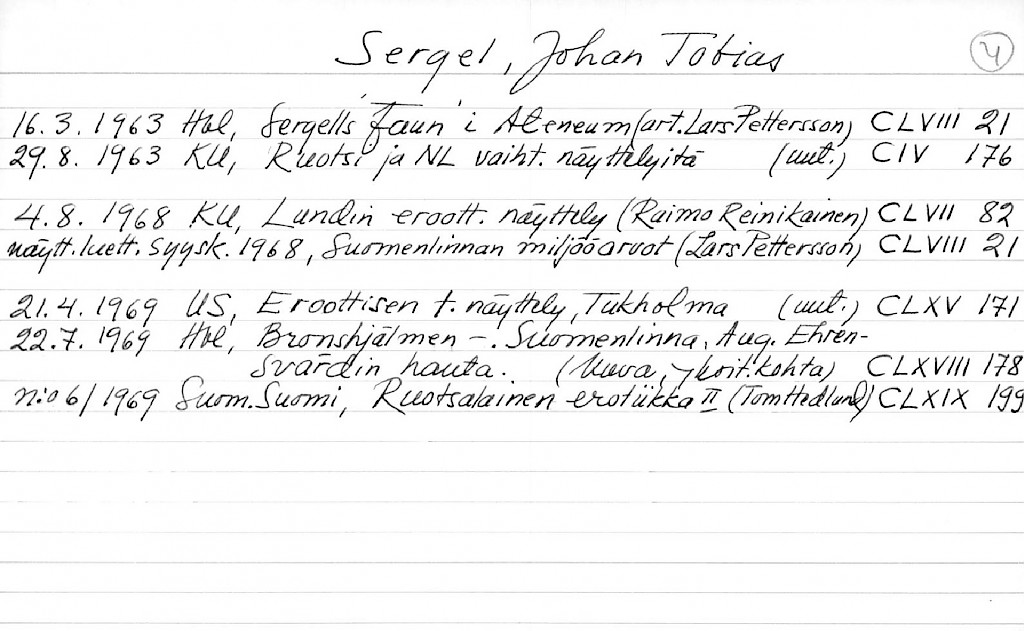 Sergel, Johan Tobias 4
16.3.1963 Hbl, Sergells "Faun" i Ateneum (art. Lars Pettersson) CLVIII 21
29.8.1963 KU, Ruotsi ja NL vaiht. näyttelyitä (uut.) CIV 176
4.8.1968 KU, Lundin eroott. näyttely (Raimo Reinikainen) CLVII 82
näytt.luett. syysk. 1968, Suomenlinnan miljööarvot (Lars Pettersson) CLVIII 21
21.4.1969 US, Eroottisen t. näyttely, Tukholma (uut.) CLXV 171
22.7.1969 Hbl, Bronshjälmen -. Suomenlinna, Aug. Ehren-
svärdin hauta. (kuva, kohta) CLXVIII 178
n:o 6/1969 Suom.Suomi, Ruotsalainen erotiikka II (Tom Hedlund) CLXIX 199